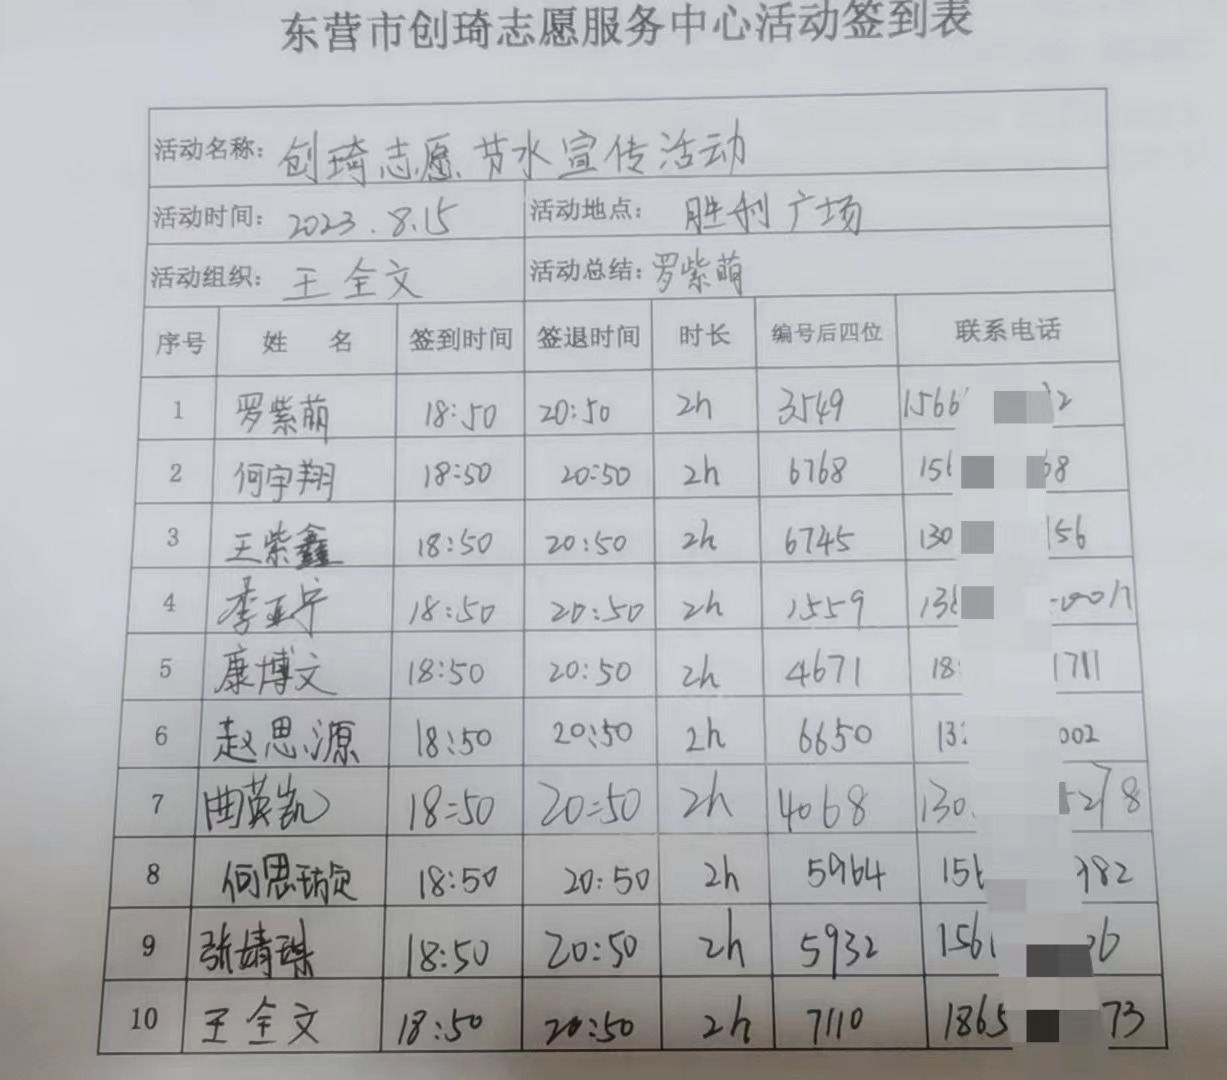 东营市创琦志愿服务中心活动签到表
活动名称: 创琦志愿节水宣传活动
活动时间: 2023.8.15 活动地点: 胜利广场
活动组织: 王全文 活动总结: 罗紫萌
序号 姓 名 签到时间 签退时间 时长 编号后四位 联系电话
1 罗紫萌 18:50 20:50 2h 3549 1566 2
2 何宇翔 18:50 20:50 2h 6768 156 68
3 王紫鑫 18:50 20:50 2h 6745 130 156
4 李亚宁 18:50 20:50 2h 1559 138
5 康博文 18:50 20:50 2h 4671 18 1711
6 赵思源 18:50 20:50 2h 6650 13 002
7 曲英凯 18:50 20:50 2h 4068 130 5278
8 何思 18:50 20:50 2h 5964 156 382
9 张婧 18:50 20:50 2h 5932 156 6
10 王全文 18:50 20:50 2h 7110 1865 73